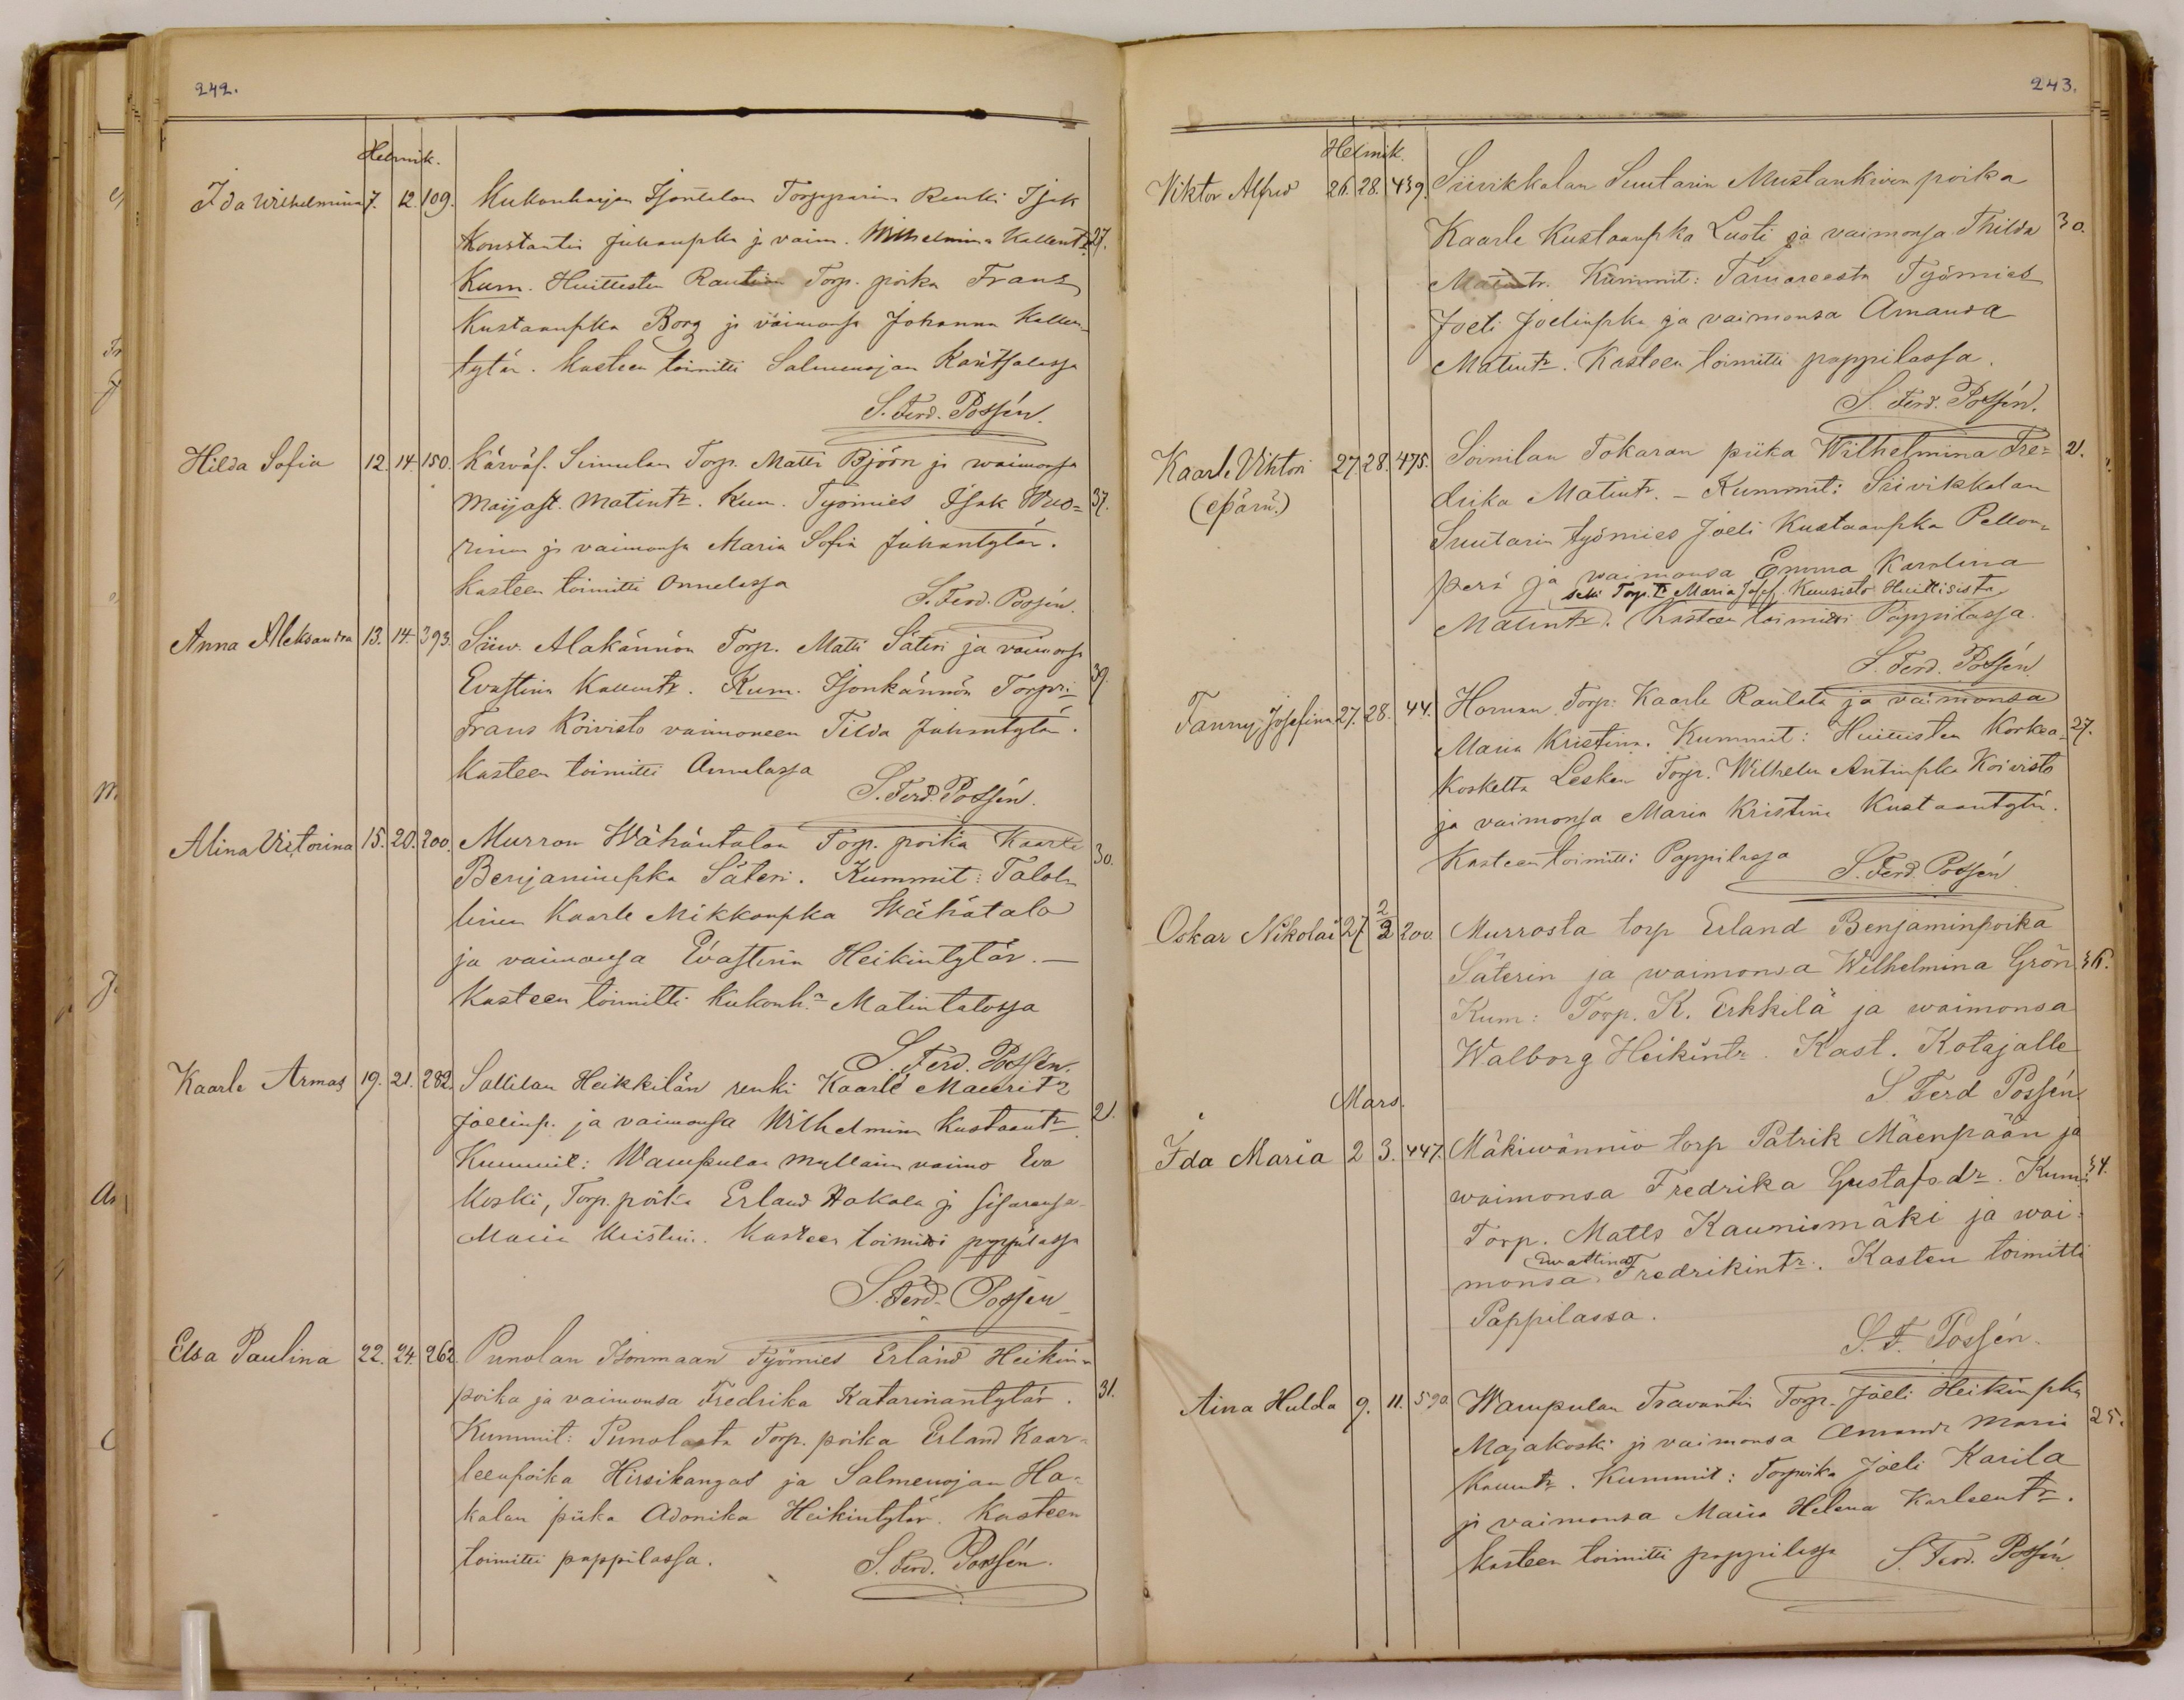 242.
Helmik.
Ida Wilhelmina 7. 12. 109. Kukonharjan Isontalon Torpparin Renki Isak
Konstantin Juhanpka ja vaim. Wilhelmina Kallentr. 27.
Kum. Huittisten Torp. poika Frans
Kustaanpka Borg ja vaimonsa Johanna Kallen-
tytär. Kasteen toimitti Salmenojan
S. Ferd. Possén.
Hilda Sofia 12. 14. 150. Kärväs. Simulan Torp. Matti Björn ja waimonsa
Maijast. Matintr. Kum. Työmies Isak Wuo- 37.
rinen ja vaimonsa Maria Sofia Juhantytär.
Kasteen toimitti Annalassa
S. Ferd. Possén.
Anna Aleksandra 13. 14. 393. Siiw. Alakännön Torp. Matti Säteri ja vaimonsa
Evastiina Kallentr. Kum. Isonkännön Torpri 39.
Frans Koivisto vaimoneen Tilda Juhantytär.
Kasteen toimitti Annalassa
S. Ferd. Possén.
Alina Victorina 15. 20. 200. Murron Wähäntalon Torp. poika Kaarle
Benjaminpka Säteri. Kummit: Talol- 30.
linen Kaarle Mikkonpka Wähätalo
ja vaimonsa Evastiina Heikintytär. —
Kasteen toimitti Kukonh:n Matintalossa
S. Ferd. Possén.
Kaarle Armas 19. 21. 282. Sallilan Heikkilän renki Kaarle Mauritz
Joelinp. ja vaimonsa Wilhelmina Kustaantr. 21.
Kummit: Wampulan Myllärin vaimo Eva
Koski, Torp. poika Erland Hakala ja sisarensa
Maria Kristiin. Kasteen toimitti pappilassa
S. Ferd. Possén
Elsa Paulina 22. 24. 262. Punolan Isonmaan Työmies Erland Heikin-
poika ja vaimonsa Fredrika Katarinantytär. 31.
Kummit: Punolasta Torp. poika Erland Kaar-
leenpoika Hirsikangas ja Salmenojan Ha-
kalan piika Adonika Heikintytär. Kasteen
toimitti pappilassa. S. Ferd. Possén.
243.
Helmik.
Viktor Alfred 26. 28. 439. Siivikkalan Suutarin Mustankiven poika
Kaarle Kustaanpka Luoti ja vaimonsa Thilda 30.
Matintr. Kummit: Työmies
Joeli Joelinpka ja vaimonsa Amanda
Matintr. Kasteen toimitti pappilassa.
S. Ferd. Possén.
Kaarle Viktori 27. 28. 475. Soinilan Tokaran piika Wilhelmina Fre- 21.
(epärä.) drika Matintr. – Kummit: Siivikkalan
Suutarin työmies Joeli Kustaanpka Pellon-
perä ja waimonsa Emma Karolina
sekä Torp. tr Maria Josef. Kuusisto Huittisista
Matintr. Kasteen toimitti Pappilassa.
S. Ferd. Possén
Fanny Josefina 27. 28. 44. Horman Torp: Kaarle Rautala ja vaimonsa
Maria Kristina. Kummit: Huittisten Korkea- 27.
koskelta Lesken Torp. Wilhelm Antinpka Koivisto
ja vaimonsa Maria Kristiina Kustaantytär.
Kasteen toimitti Pappilassa S. Ferd. Possén
Oskar Nikolai 27 2/3 200 Murrosta torp Erland Benjaminpoika
Säterin ja waimonsa Wilhelmina Grön 36.
Kum: Torp. K. Erkkilä ja waimonsa
Walborg Heikintr. Kast. Kotajalle
S. Ferd Possén
Mars.
Ida Maria 2 3. 447. Mäkiwännio torp Patrik Mäenpään ja
waimonsa Fredrika Gustafsdr. Kum: 34.
Torp. Matts Kaunismäki ja wai-
Ewastina
monsa Fredrikintr. Kasten toimitti
Pappilassa.
S. F. Possén.
Aina Hulda 9. 11. 590. Wampulan Travantin Torp. Joeli Heikinpka
Majakoski ja vaimonsa Amanda Maria 25.
Kallentr. Kummit: Torpoika Joeli Karila
ja vaimonsa Maria Helena Karleentr.
Kasteen toimitti pappilassa S. Ferd. Possén